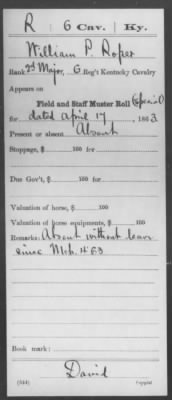 R | 6 Cav. | Ky.
William P. Roper
Rank 2d Major, 6 Reg't Kentucky Cavalry
Appears on
Field and Staff Muster Roll (Special)
for dated April 17, 1863
Present or absent Absent
Stoppage, $ 100 for
Due Gov't, $ 100 for
Valuation of horse, $ 100
Valuation of horse equipments, $ 100
Remarks: Absent without leave
since Mch. 4 63
Book mark:
David
(544) Copyist